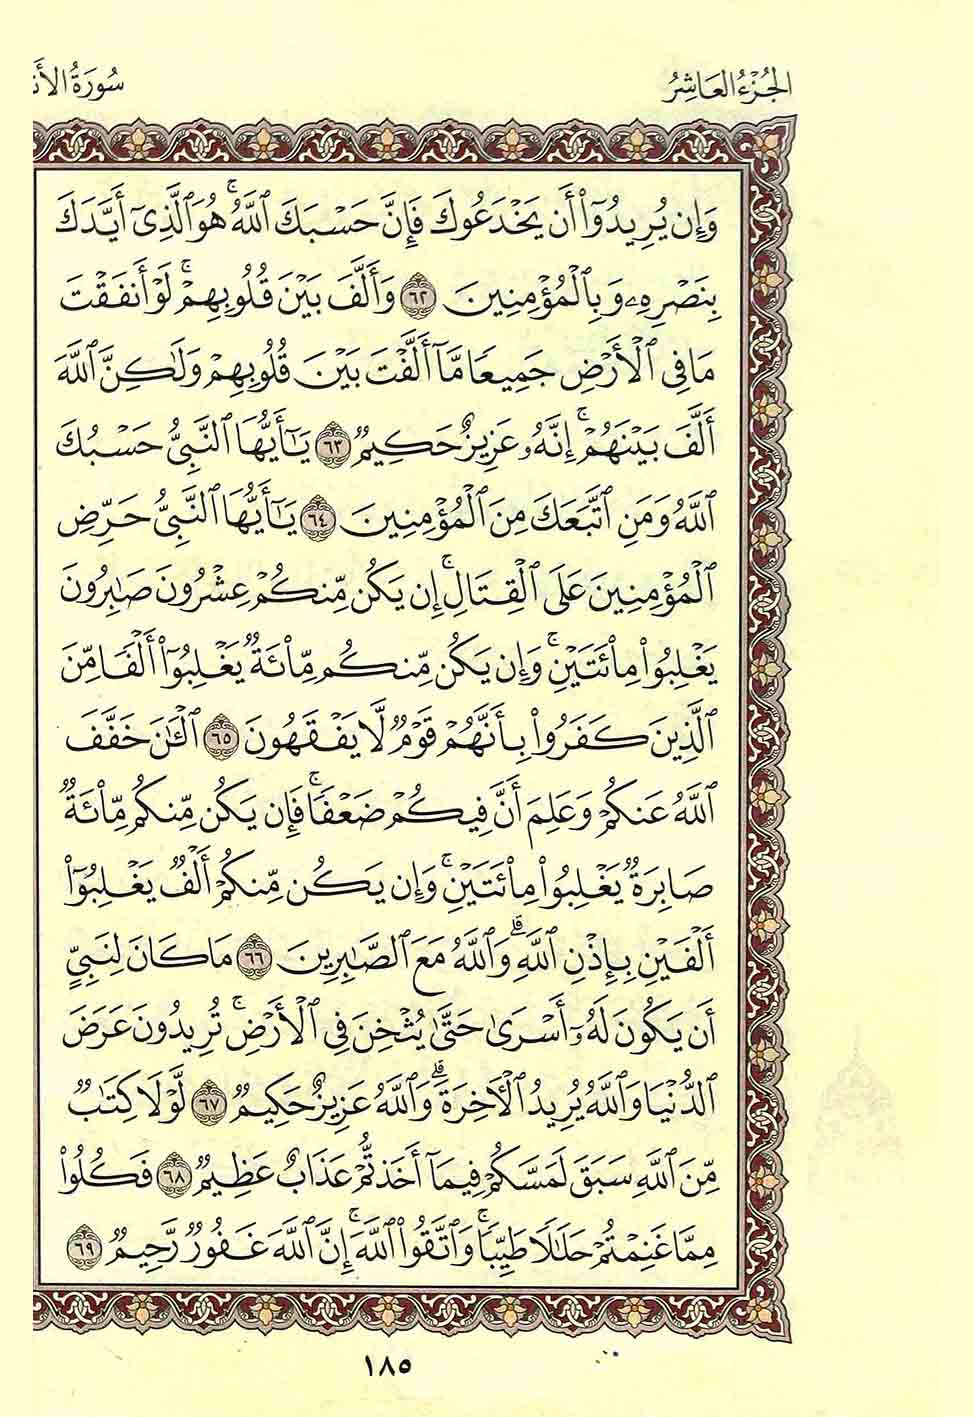 الجُزْءُ العَاشِرُ
سُورَةُ
وَإِن يُرِيدُوٓا۟ أَن يَخْدَعُوكَ فَإِنَّ حَسْبَكَ ٱللَّهُ ۚ هُوَ ٱلَّذِىٓ أَيَّدَكَ
بِنَصْرِهِۦ وَبِٱلْمُؤْمِنِينَ ٦٢ وَأَلَّفَ بَيْنَ قُلُوبِهِمْ ۚ لَوْ أَنفَقْتَ
مَا فِى ٱلْأَرْضِ جَمِيعًا مَّآ أَلَّفْتَ بَيْنَ قُلُوبِهِمْ وَلَـٰكِنَّ ٱللَّهَ
أَلَّفَ بَيْنَهُمْ ۚ إِنَّهُۥ عَزِيزٌ حَكِيمٌ ٦٣ يَـٰٓأَيُّهَا ٱلنَّبِىُّ حَسْبُكَ
ٱللَّهُ وَمَنِ ٱتَّبَعَكَ مِنَ ٱلْمُؤْمِنِينَ ٦٤ يَـٰٓأَيُّهَا ٱلنَّبِىُّ حَرِّضِ
ٱلْمُؤْمِنِينَ عَلَى ٱلْقِتَالِ ۚ إِن يَكُن مِّنكُمْ عِشْرُونَ صَـٰبِرُونَ
يَغْلِبُوا۟ مِا۟ئَتَيْنِ ۚ وَإِن يَكُن مِّنكُم مِّا۟ئَةٌ يَغْلِبُوٓا۟ أَلْفًا مِّنَ
ٱلَّذِينَ كَفَرُوا۟ بِأَنَّهُمْ قَوْمٌ لَّا يَفْقَهُونَ ٦٥ ٱلْـَٔـٰنَ خَفَّفَ
ٱللَّهُ عَنكُمْ وَعَلِمَ أَنَّ فِيكُمْ ضَعْفًا ۚ فَإِن يَكُن مِّنكُم مِّا۟ئَةٌ
صَابِرَةٌ يَغْلِبُوا۟ مِا۟ئَتَيْنِ ۚ وَإِن يَكُن مِّنكُمْ أَلْفٌ يَغْلِبُوٓا۟
أَلْفَيْنِ بِإِذْنِ ٱللَّهِ ۗ وَٱللَّهُ مَعَ ٱلصَّـٰبِرِينَ ٦٦ مَا كَانَ لِنَبِىٍّ
أَن يَكُونَ لَهُۥٓ أَسْرَىٰ حَتَّىٰ يُثْخِنَ فِى ٱلْأَرْضِ ۚ تُرِيدُونَ عَرَضَ
ٱلدُّنْيَا وَٱللَّهُ يُرِيدُ ٱلْـَٔاخِرَةَ ۗ وَٱللَّهُ عَزِيزٌ حَكِيمٌ ٦٧ لَّوْلَا كِتَـٰبٌ
مِّنَ ٱللَّهِ سَبَقَ لَمَسَّكُمْ فِيمَآ أَخَذْتُمْ عَذَابٌ عَظِيمٌ ٦٨ فَكُلُوا۟
مِمَّا غَنِمْتُمْ حَلَـٰلًا طَيِّبًا ۚ وَٱتَّقُوا۟ ٱللَّهَ ۚ إِنَّ ٱللَّهَ غَفُورٌ رَّحِيمٌ ٦٩
١٨٥